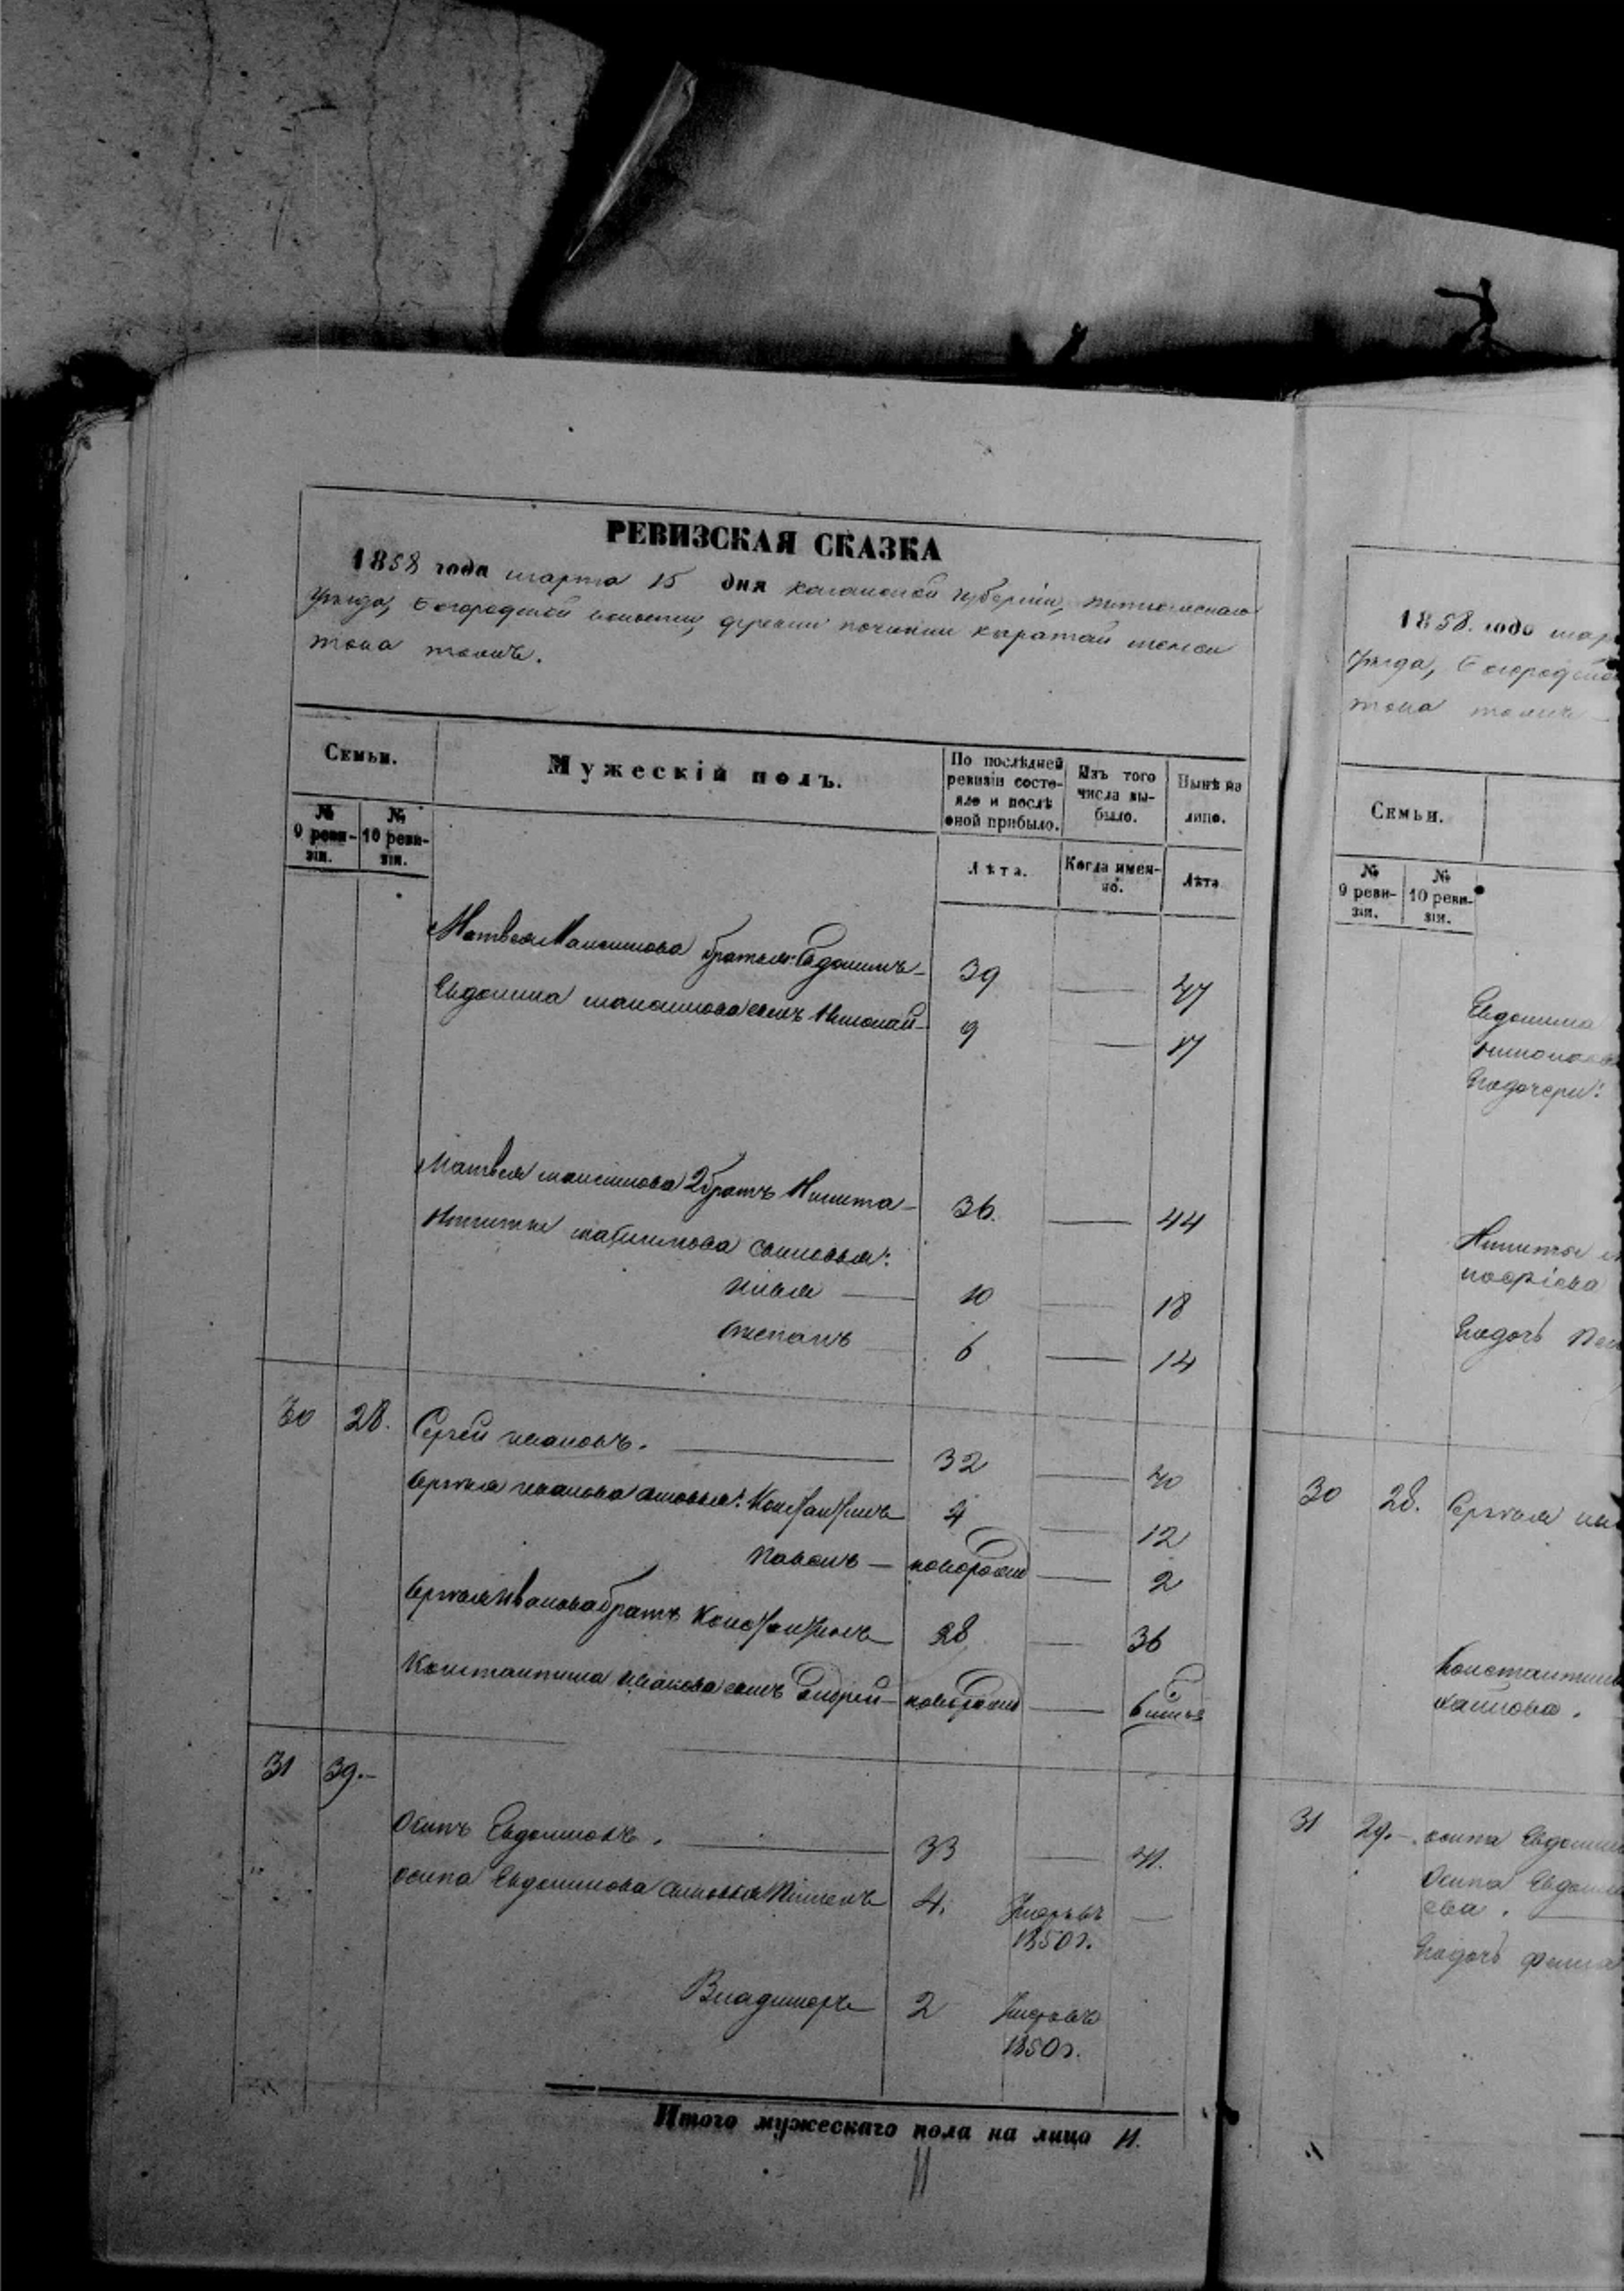 РЕВИЗСКАЯ СКАЗКА
1858 года марта 15 дня казанской губернiи,
уезда, Богородской волости, деревни починки
тожъ.
Семьи.
Мужескій полъ.
По послѣдней ревизіи состояло и послѣ оной прибыло.
Изъ того числа выбыло.
Нынѣ на лицо.
№ 9 ревизіи.
№ 10 ревизіи.
Лѣта.
Когда именно.
Лѣта
Матвея Максимова братья: Евдокимъ — 39 — 47
Евдокима максимова сынъ Николай — 9 — 17
Матвея максимова 2 братъ Никита — 36. — 44
Никиты максимова сыновья:
илья — 10 — 18
степанъ — 6 — 14
30 28. Сергей ивановъ. — 32 — 40
Сергея иванова сыновья: Константинъ 4 — 12
павелъ — новорожд — 2
Сергея Иванова братъ Константинъ — 28 — 36
Константина иванова сынъ Андрей — новорожд — 6
31 39. —
Осипъ Евдокимовъ. — 33 — 41.
осипа Евдокимова сыновья 4. Умеръ въ —
1850 г.
Владимеръ 2 Умеръ въ
1850 г.
Итого мужескаго пола на лицо 11.
11
1858. года мар
уезда, Богородской
Семьи.
№ 9 ревизіи.
№ 10 ревизіи.
Евдокима
Егодочери:
Никиты
Егодочь
30 28. Сергея ив
Константина
31 29. — осипа Евдоким
Осипа Евдоким
ева.
Егодочь